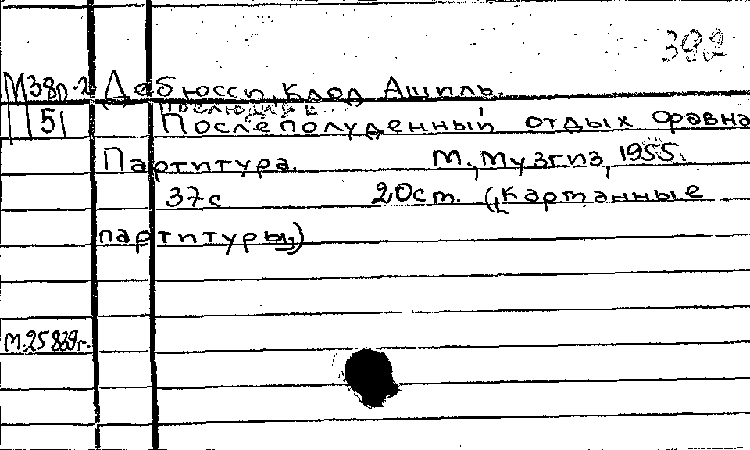 392
М38п-2 Дебюсси, Клод Ашиль.
Прелюдия к
П 51 Послеполуденный отдых фавна
Партитура. М., Музгиз, 1955.
37с 20см. („Карманные
партитуры")
М.25839г.